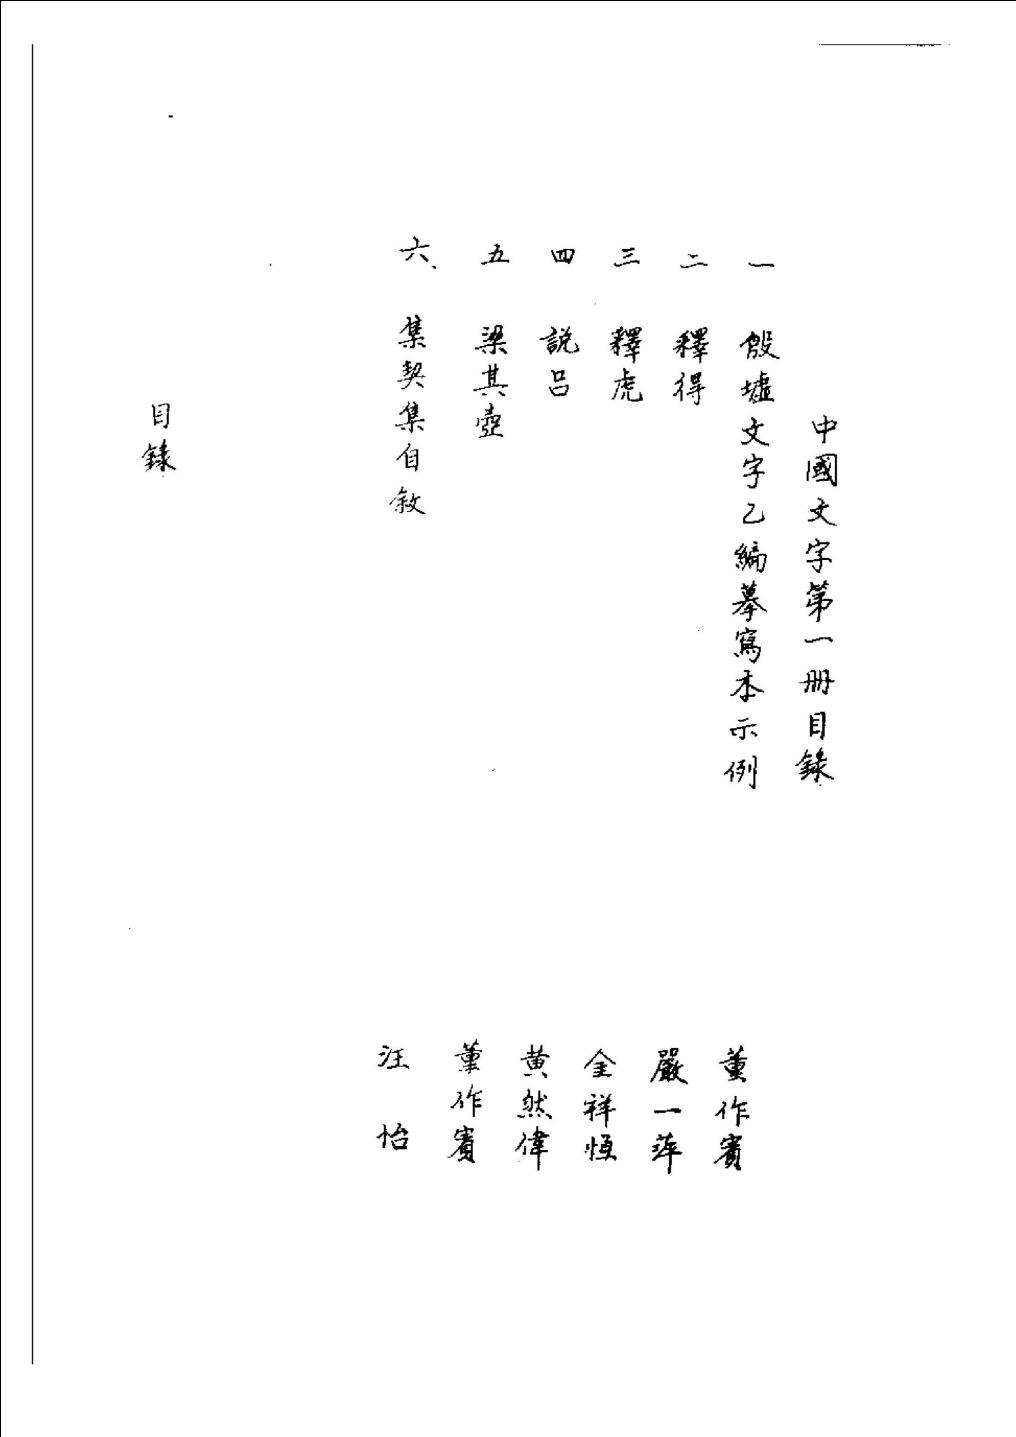 中國文字第一册目錄
一 殷墟文字乙編摹寫本示例 董作賓
二 釋得 嚴一萍
三 釋虎 金祥恒
四 説呂 黄然偉
五 梁其壺 董作賓
六、集契集自敘 汪怡
目錄